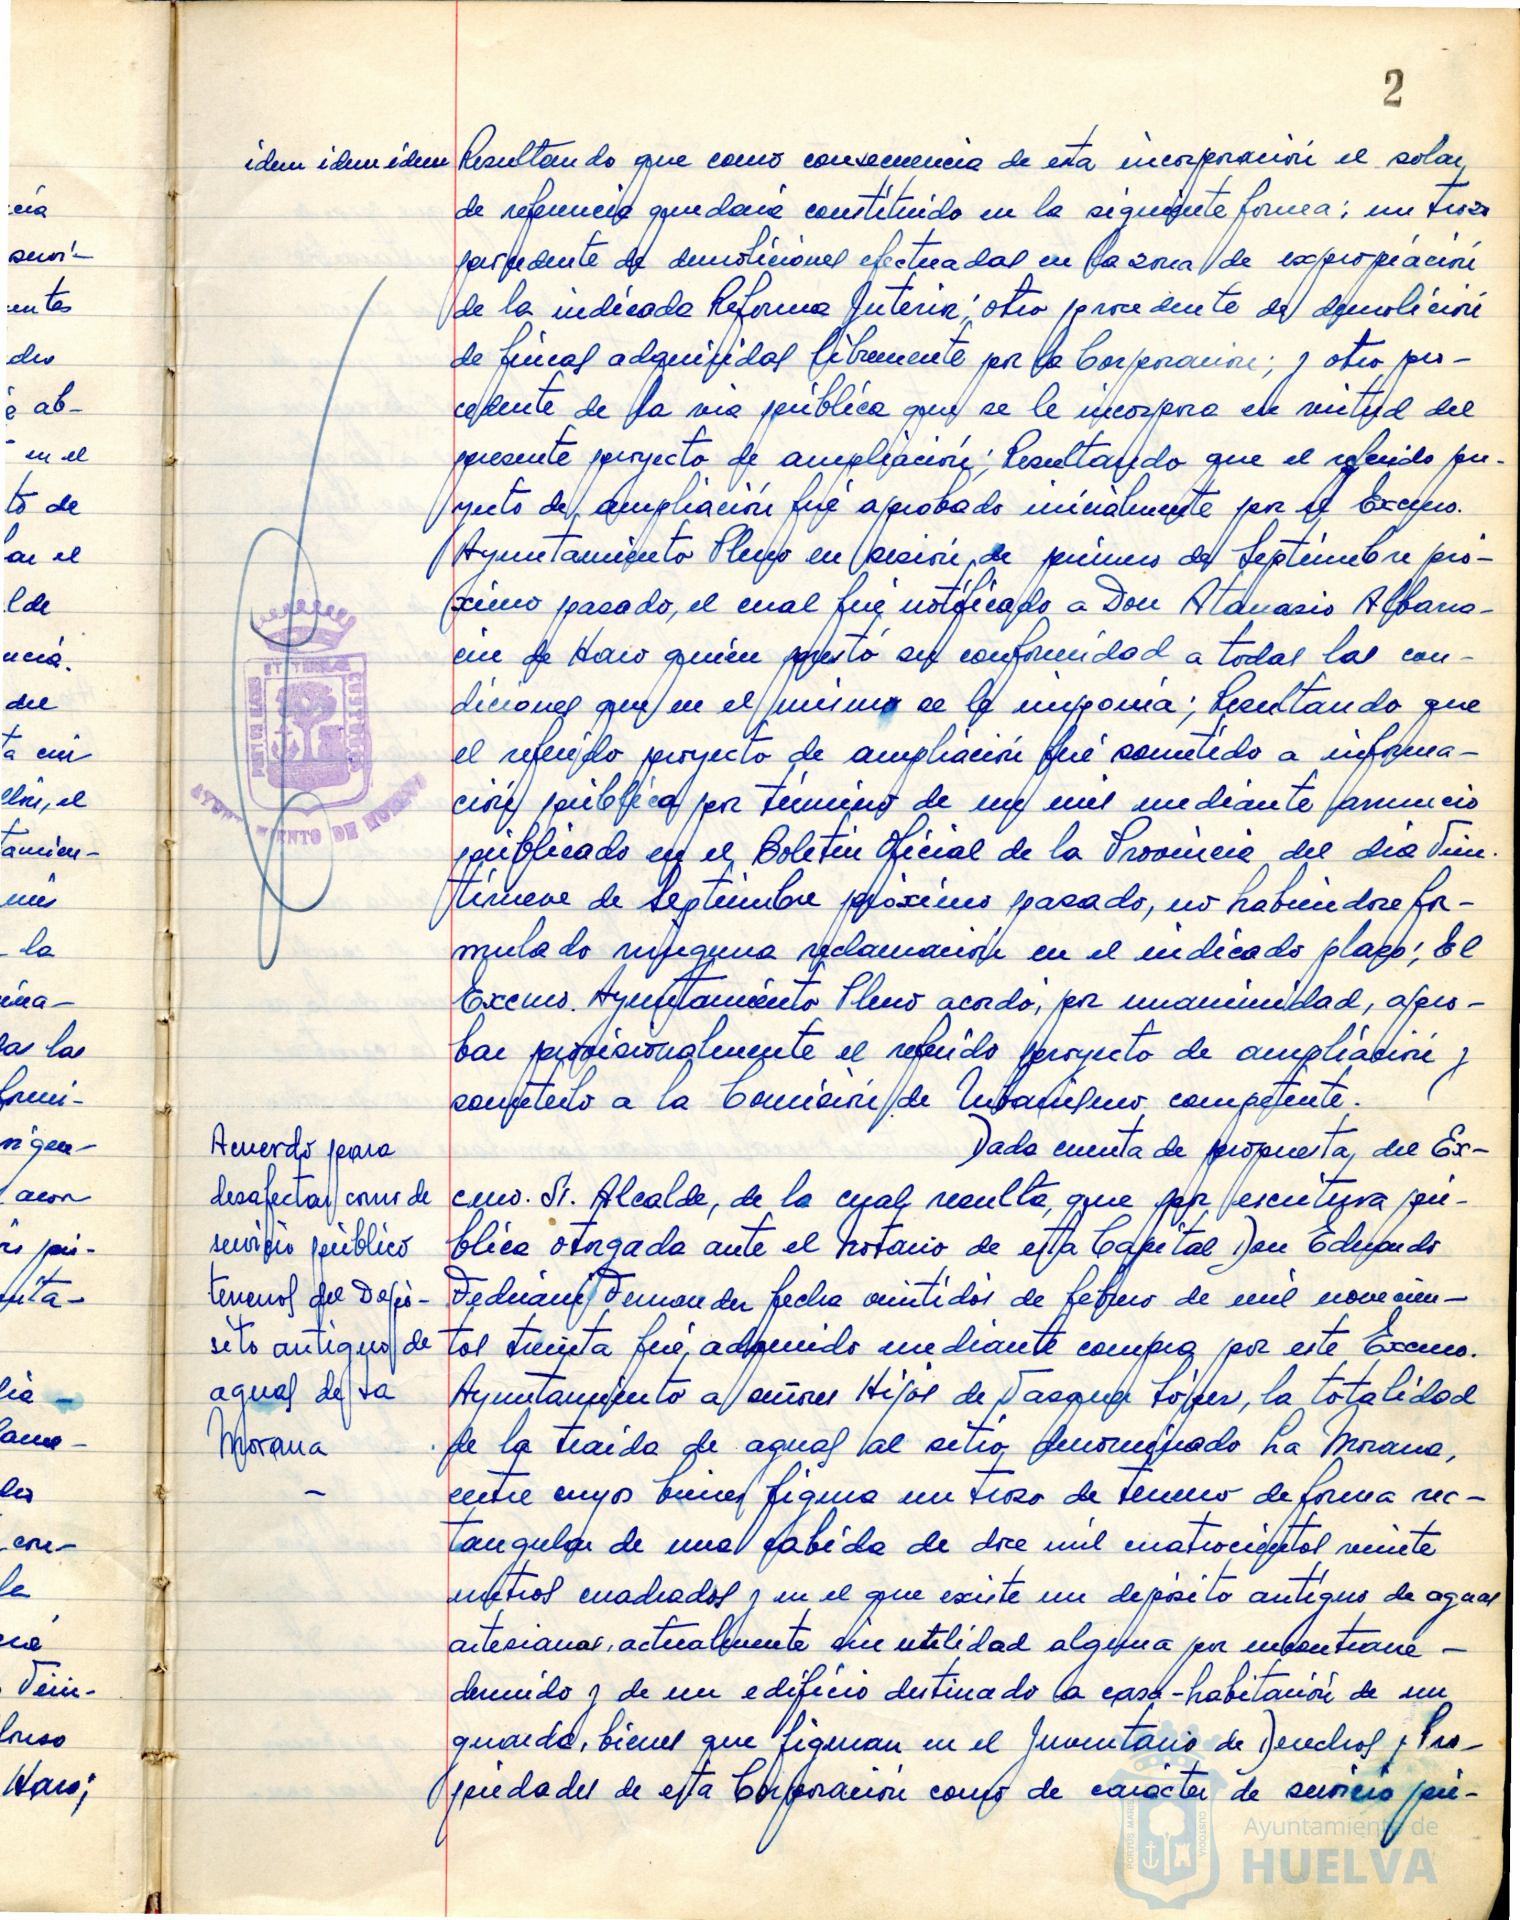 2
idem idem idem
Resultando que como consecuencia de esta incorporación el solar
de referencia quedaría constituido en la siguiente forma; un trozo
procedente de demoliciones efectuadas en la zona de expropiación
de la indicada Reforma Interior; otro procedente de demolición
de fincas adquiridas libremente por la Corporación; y otro pro-
cedente de la via pública que se le incorpora en virtud del
presente proyecto de ampliación; Resultando que el referido pro-
yecto de ampliación fué aprobado inicialmente por el Excmo.
Ayuntamiento Pleno en sesión de primero de Septiembre pró-
ximo pasado, el cual fué notificado a Don Atanasio Albarra-
cin de Haro quien prestó su conformidad a todas las con-
diciones que en el mismo se le imponía; Resultando que
el referido proyecto de ampliación fué sometido a informa-
ción pública por término de un mes mediante anuncio
publicado en el Boletin Oficial de la Provincia del día Vein-
tinueve de Septiembre próximo pasado, no habiendose for-
mulado ninguna reclamación en el indicado plazo; El
Excmo. Ayuntamiento Pleno acordó, por unanimidad, apro-
bar provisionalmente el referido proyecto de ampliación y
someterlo a la Comisión de Urbanismo competente.
Acuerdo para
desafectar como de
servicio público
terrenos del Depó-
sito antiguo de
aguas de La
Morana
-
Dada cuenta de propuesta del Ex-
cmo. Sr. Alcalde, de la cual resulta, que por escritura pú-
blica otorgada ante el Notario de esta Capital Don Eduardo
Fedriani Fernandez fecha veintidós de febrero de mil novecien-
tos treinta fué, adquirido mediante compra por este Excmo.
Ayuntamiento a señores Hijos de Vazquez López, la totalidad
de la traida de aguas al sitio denominado La Morana,
entre cuyos bienes figura un trozo de terreno de forma rec-
tangular de una cabida de doce mil cuatrocientos veinte
metros cuadrados y en el que existe un depósito antiguo de aguas
artesianas, actualmente sin utilidad alguna por encontrarse
derruido y de un edificio destinado a casa-habitación de un
guarda, bienes que figuran en el Inventario de Derechos y Pro-
piedades de esta Corporación como de carácter de servicio pú-
AYUNTAMIENTO DE HUELVA
Ayuntamiento de
HUELVA